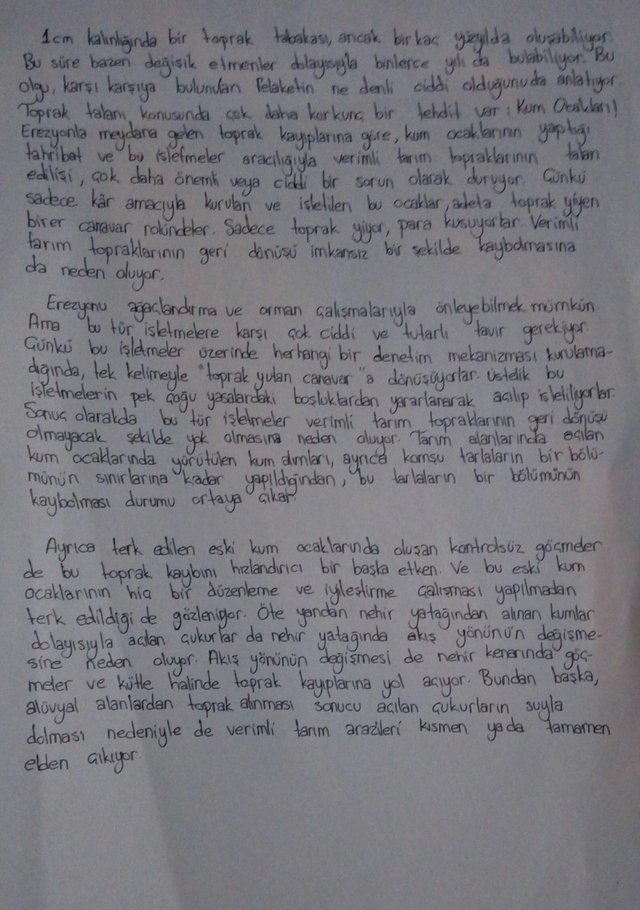 1cm kalınlığında bir toprak tabakası, ancak bir kaç yüzyılda oluşabiliyor.
Bu süre bazen değişik etmenler dolayısıyla binlerce yılı da bulabiliyor. Bu
olgu, karşı karşıya bulunulan felaketin ne denli ciddi olduğunuda anlatıyor.
Toprak talanı konusunda çok daha korkunç bir tehdit var: Kum Ocakları!
Erezyonla meydana gelen toprak kayıplarına göre, kum ocaklarının yaptığı
tahribat ve bu işletmeler aracılığıyla verimli tarım topraklarının talan
edilişi, çok daha önemli veya ciddi bir sorun olarak duruyor. Çünkü
sadece kâr amacıyla kurulan ve işletilen bu ocaklar, adeta toprak yiyen
birer canavar rolündeler. Sadece toprak yiyor, para kusuyorlar. Verimli
tarım topraklarının geri dönüşü imkansız bir şekilde kaybolmasına
da neden oluyor.
Erezyonu ağaçlandırma ve orman çalışmalarıyla önleyebilmek mümkün.
Ama bu tür işletmelere karşı çok ciddi ve tutarlı tavır gerekiyor.
Çünkü bu işletmeler üzerinde herhangi bir denetim mekanizması kurulama-
dığında, tek kelimeyle "toprak yutan canavar"a dönüşüyorlar. Üstelik bu
işletmelerin pek çoğu yasalardaki boşluklardan yararlanarak açılıp işletiliyorlar.
Sonuç olarakda bu tür işletmeler verimli tarım topraklarının geri dönüşü
olmayacak şekilde yok olmasına neden oluyor. Tarım alanlarında açılan
kum ocaklarında yürütülen kum alımları, ayrıca komşu tarlaların bir bölü-
münün sınırlarına kadar yapıldığından, bu tarlaların bir bölümünün
kaybolması durumu ortaya çıkar.
Ayrıca terk edilen eski kum ocaklarında oluşan kontrolsüz göçmeler
de bu toprak kaybını hızlandırıcı bir başka etken. Ve bu eski kum
ocaklarının hiç bir düzenleme ve iyileştirme çalışması yapılmadan
terk edildiği de gözleniyor. Öte yandan nehir yatağından alınan kumlar
dolayısıyla açılan çukurlar da nehir yatağında akış yönünün değişme-
sine neden oluyor. Akış yönünün değişmesi de nehir kenarında göç-
meler ve kütle halinde toprak kayıplarına yol açıyor. Bundan başka,
alüvyal alanlardan toprak alınması sonucu açılan çukurların suyla
dolması nedeniyle de verimli tarım arazileri kısmen ya da tamamen
elden çıkıyor.